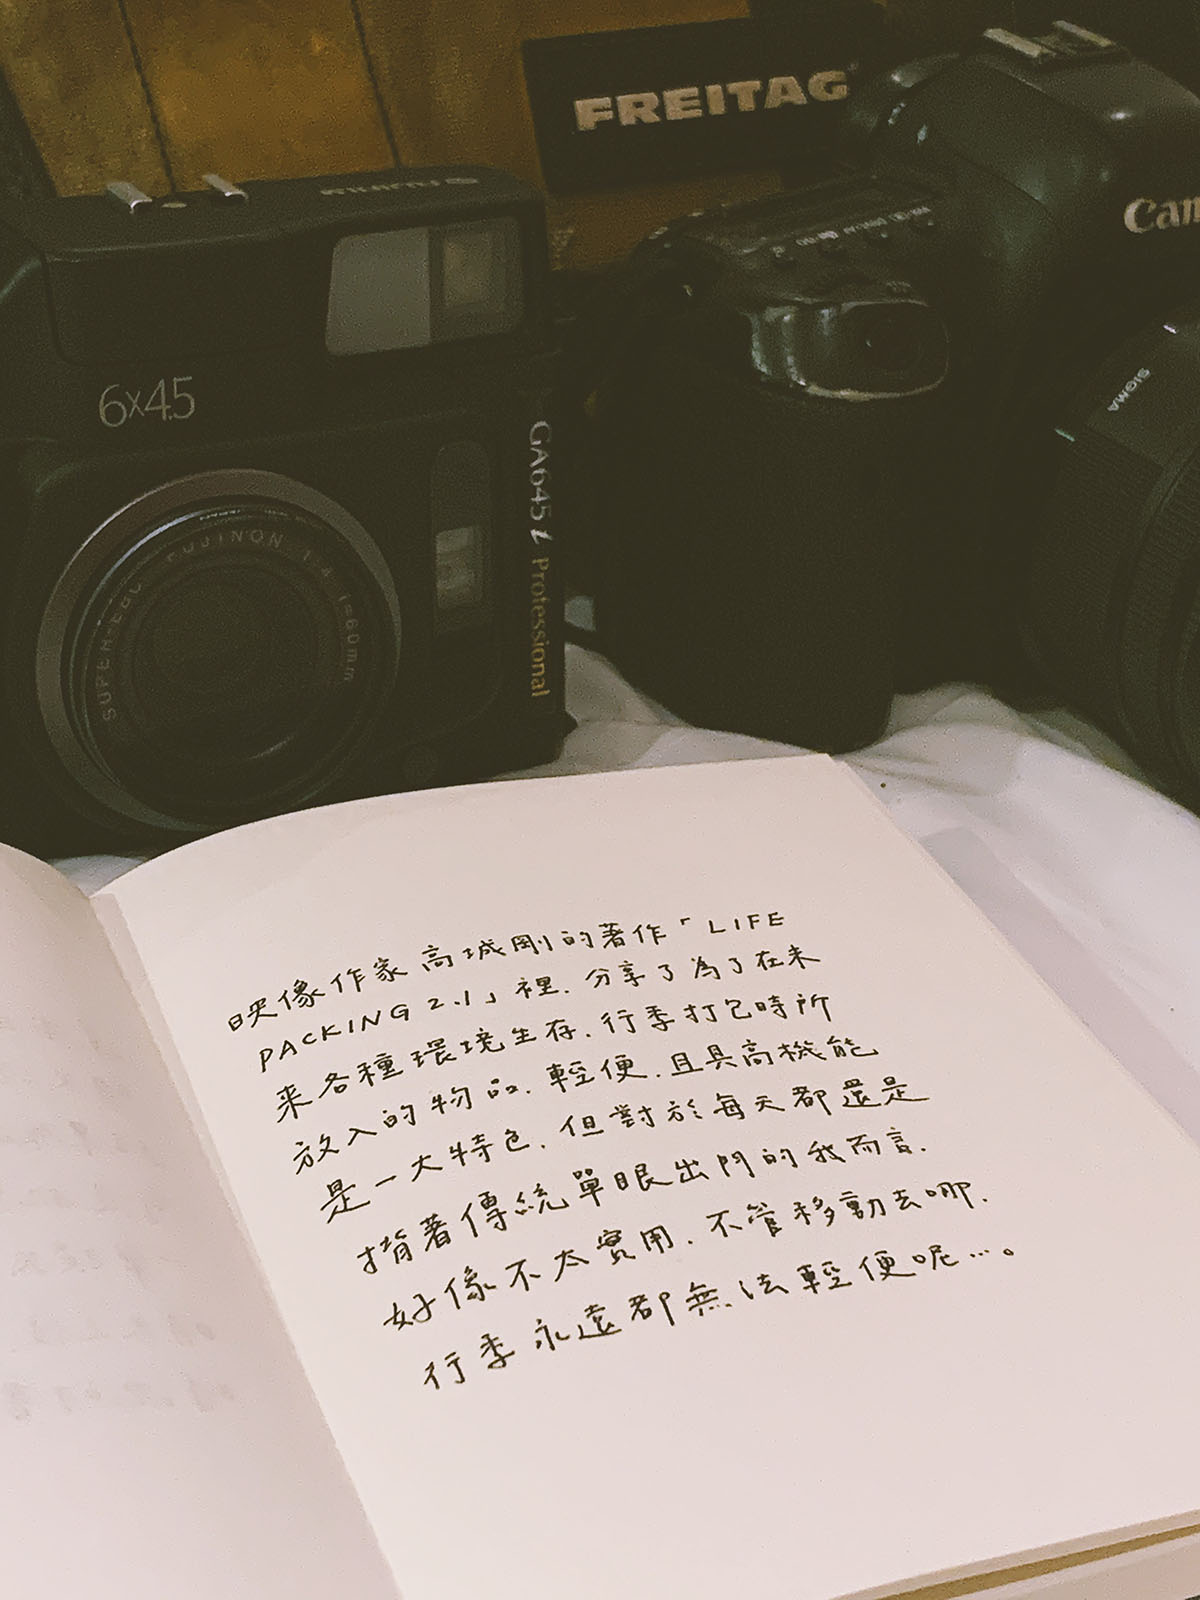 FREITAG
FUJIFILM
Can
SIGMA
6x45
GA645i Professional
SUPER-EBC FUJINON 1:4 f=60mm
映像作家高城剛的著作「LIFE
PACKING 2.1」裡、分享了為了在未
来各種環境生存、行李打包時所
放入的物品、輕便、且具高機能
是一大特色、但對於每天都還是
揹著傳統單眼出門的我而言、
好像不太實用、不管移動去哪、
行李永遠都無法輕便呢…。